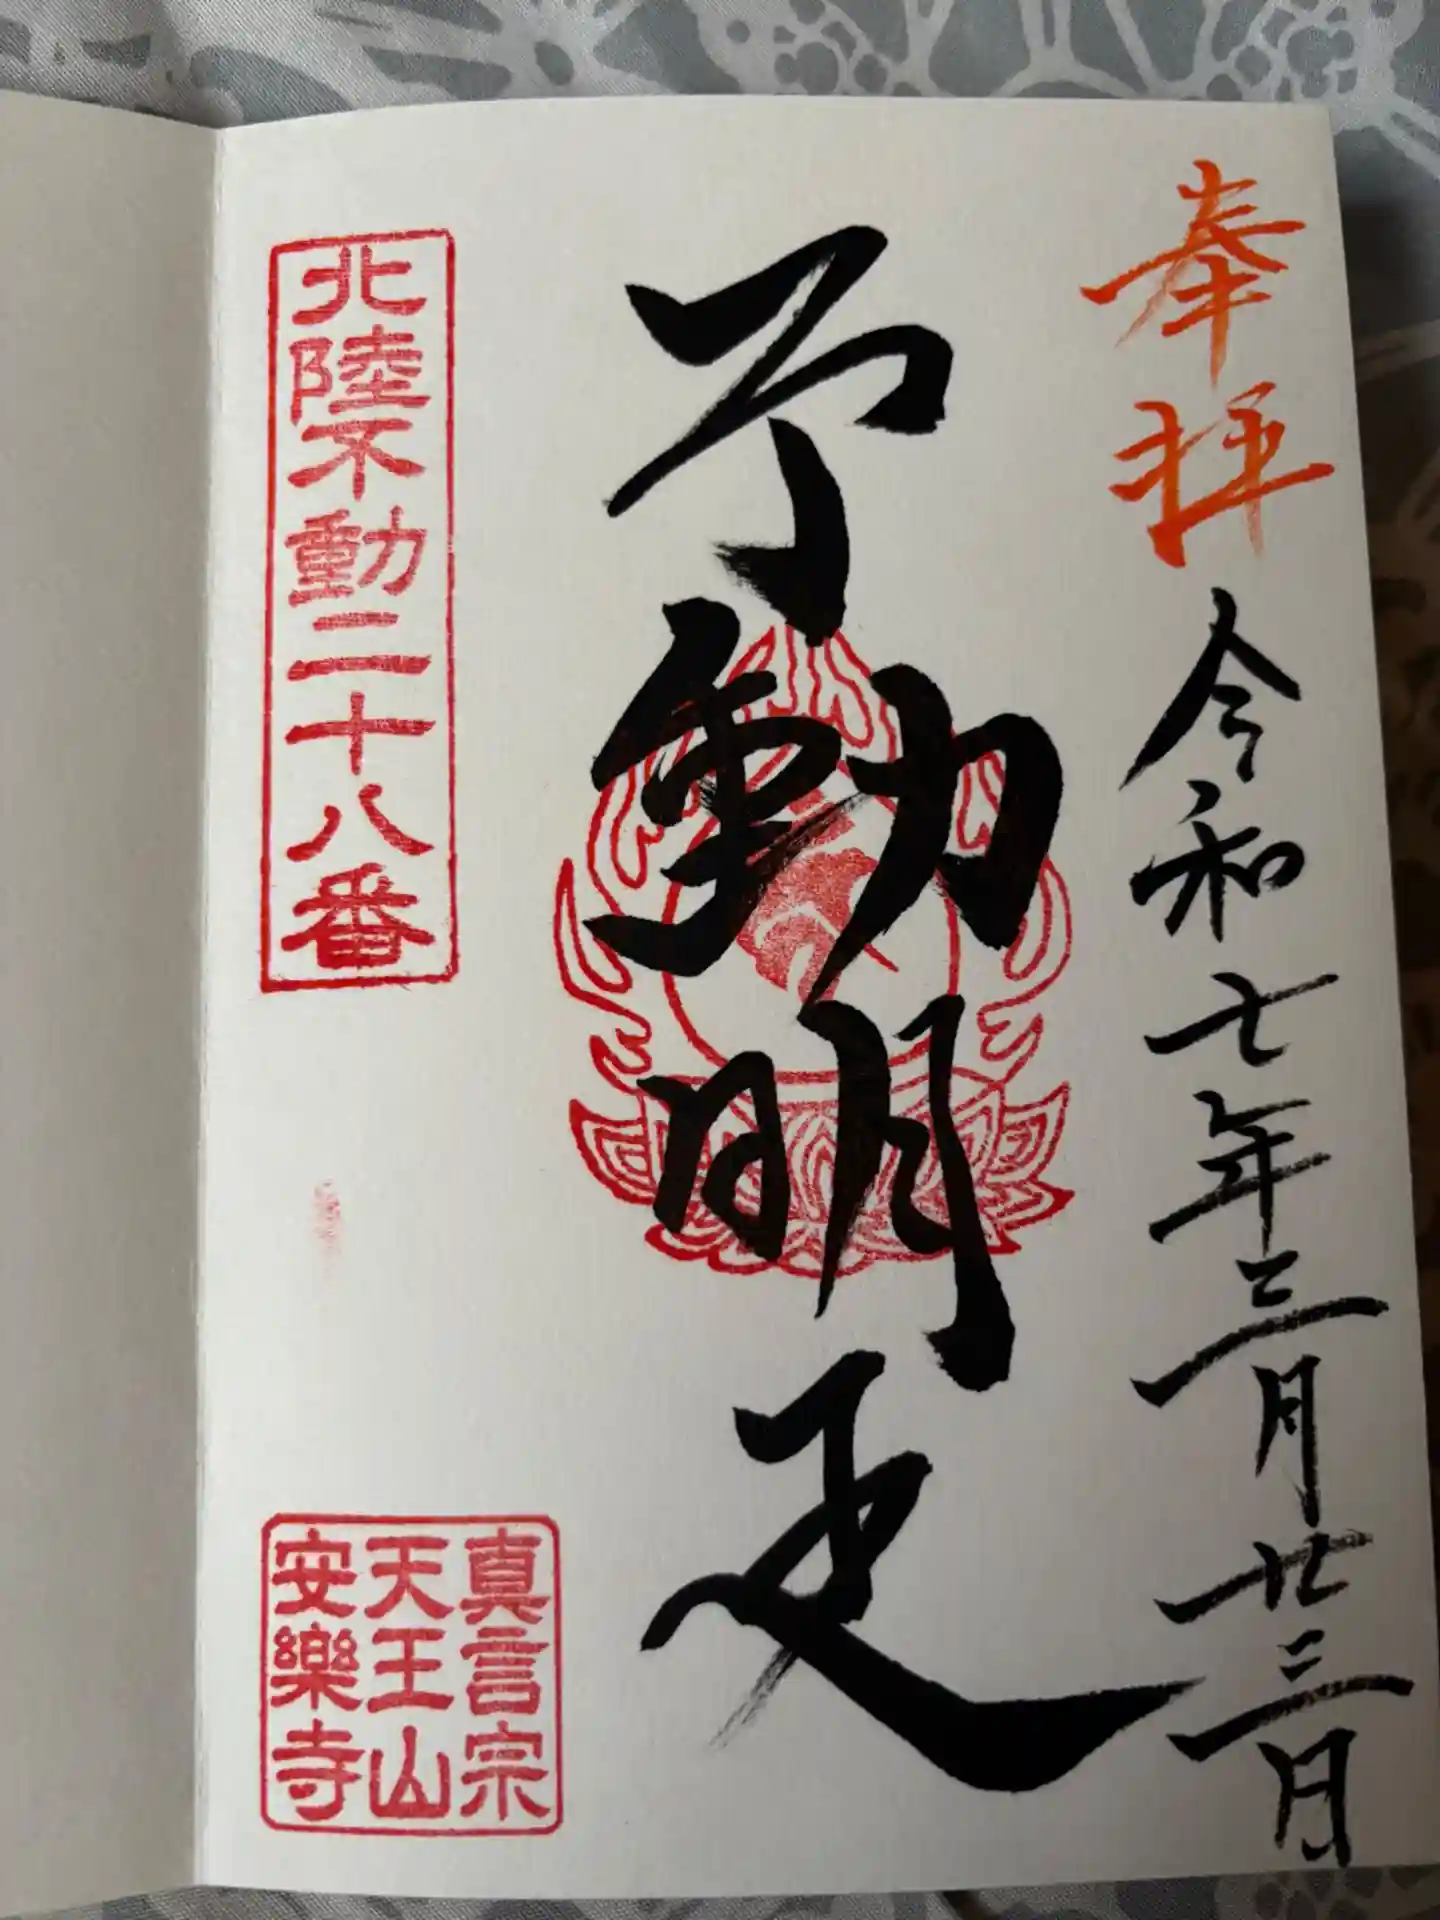 奉拝
令和七年三月廿三日
不動明王
北陸不動二十八番
真言宗
天王山
安樂寺